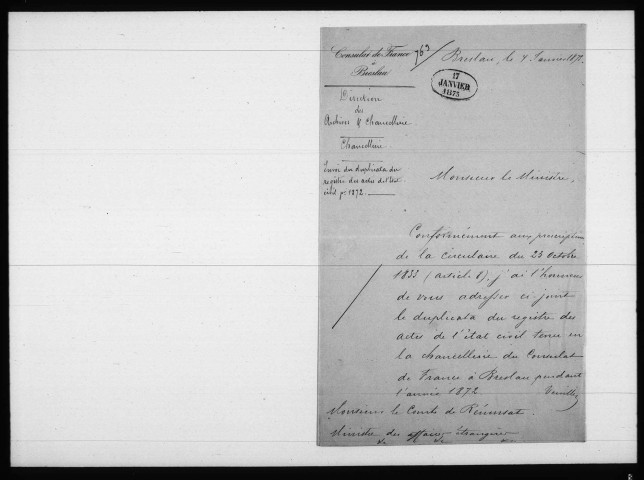 Consulat de France
à
Breslau
763
Breslau, le 7 Janvier 187
17
JANVIER
1873
Direction
des
Archives & Chancellerie
Chancellerie
Envoi du duplicata du
registre des actes de l'État
civil pr 1872.
Monsieur le Ministre,
Conformément aux prescriptions
de la circulaire du 23 Octobre
1833 (article 8), j'ai l'honneur
de vous adresser ci-joint
le duplicata du registre des
actes de l'état civil tenu en
la chancellerie du Consulat
de France à Breslau pendant
l'année 1872. Veuillez
Monsieur le Comte de Rémusat.
Ministre des affaires étrangères